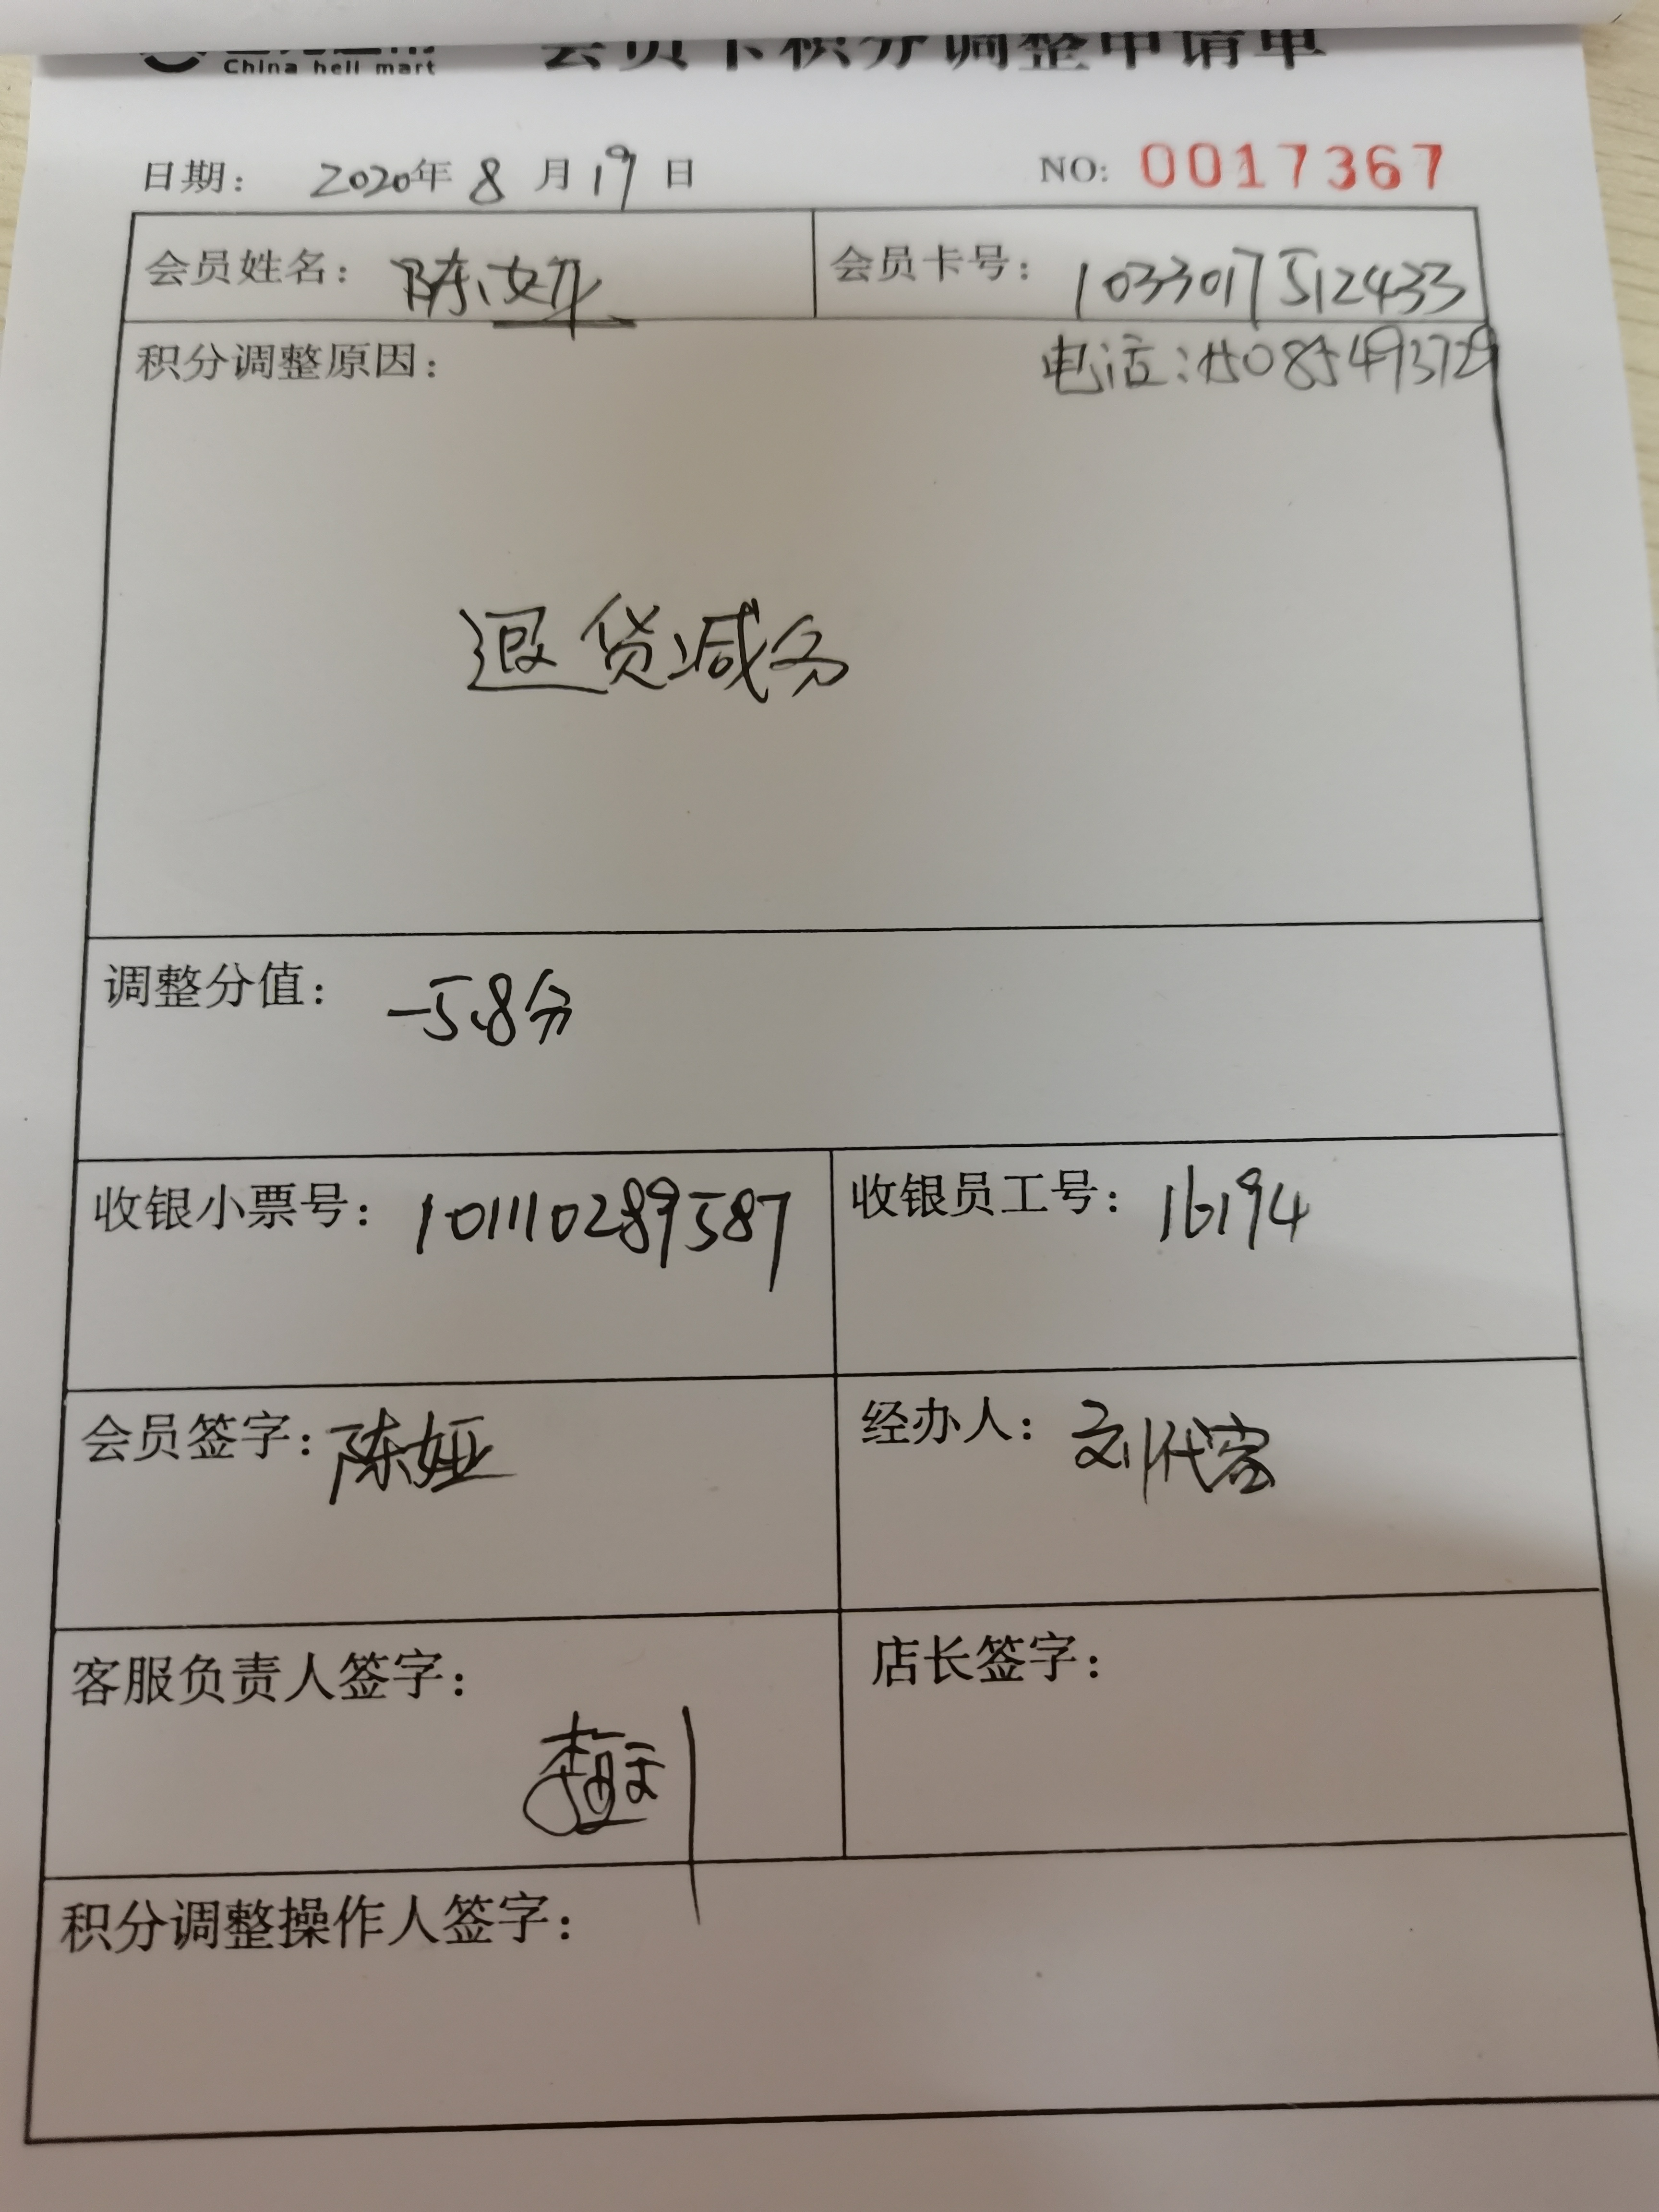 China heli mart 会员卡积分调整申请单
日期： 2020年 8 月 19 日 NO: 0017367
会员姓名： 陈娅 会员卡号： 1033017512433
积分调整原因： 电话：15085493729
退货减分
调整分值： -5.8分
收银小票号： 101110289587 收银员工号： 16194
会员签字： 陈娅 经办人： 刘代容
客服负责人签字： 店长签字：
积分调整操作人签字：